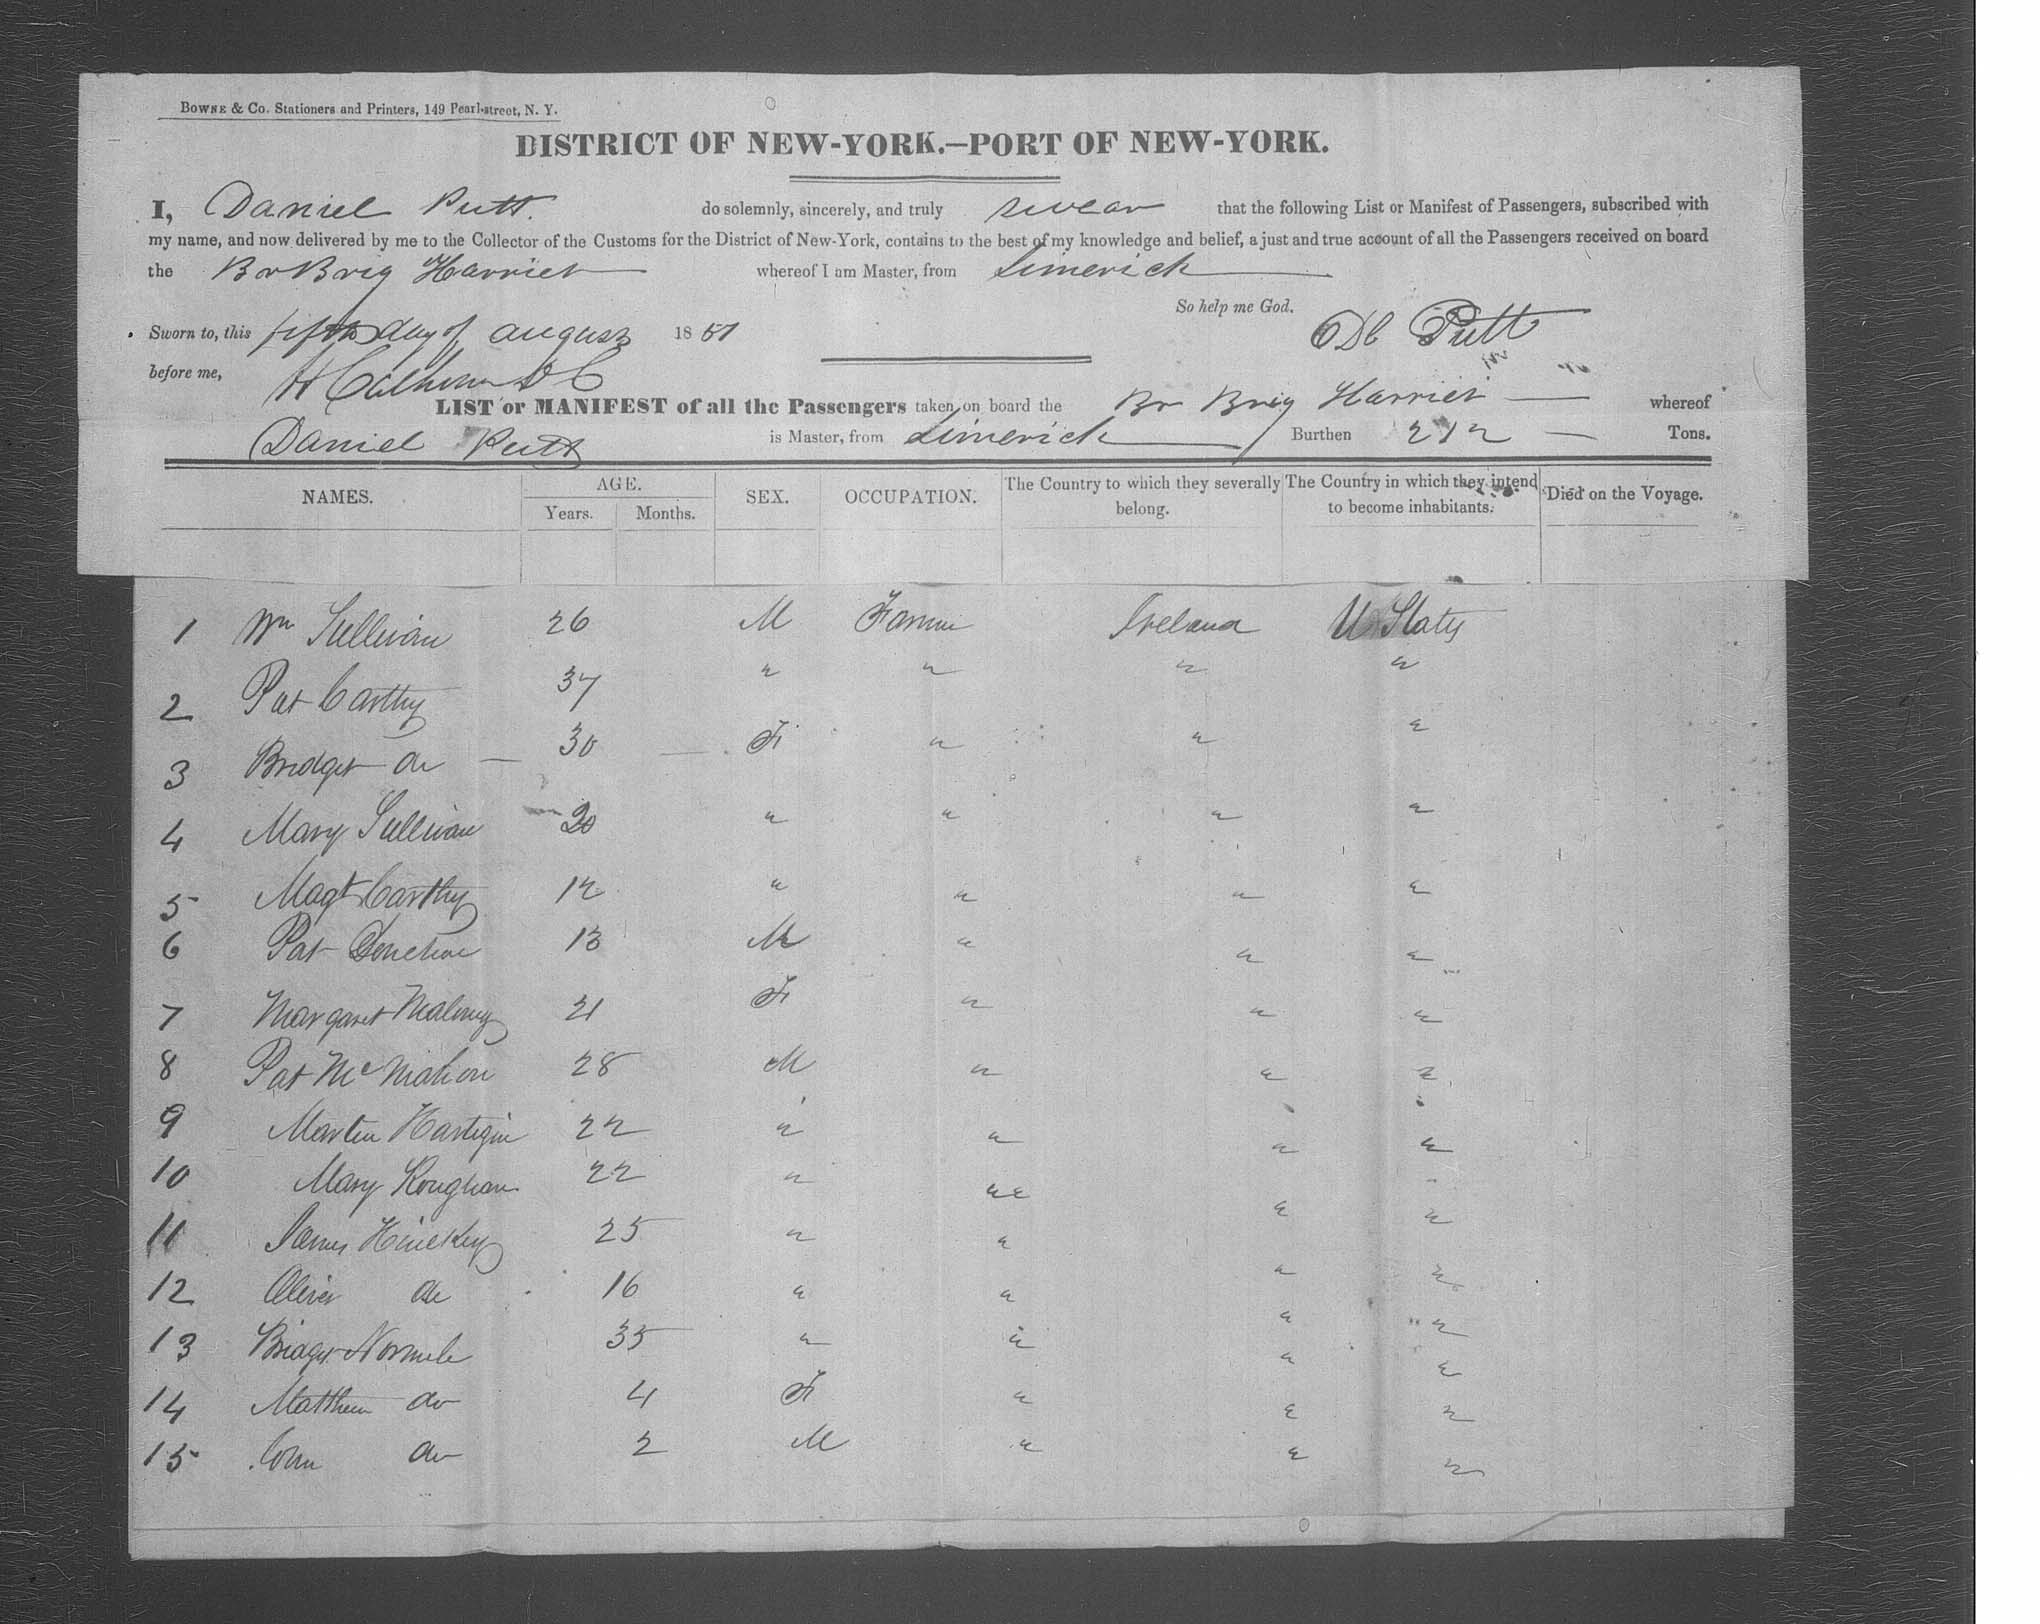 BOWNE & Co. Stationers and Printers, 149 Pearl-street, N. Y.
DISTRICT OF NEW-YORK.—PORT OF NEW-YORK.
I, Daniel Putt. do solemnly, sincerely, and truly swear that the following List or Manifest of Passengers, subscribed with
my name, and now delivered by me to the Collector of the Customs for the District of New-York, contains to the best of my knowledge and belief, a just and true account of all the Passengers received on board
the Br Brig Harriet whereof I am Master, from Limerick
So help me God.
Sworn to, this fifth day of august 1851
Putt
before me, Calhoun
LIST or MANIFEST of all the Passengers taken on board the Br Brig Harriet — whereof
Daniel Putt is Master, from Limerick Burthen 212 — Tons.
NAMES. AGE. Years. Months. SEX. OCCUPATION. The Country to which they severally belong. The Country in which they intend to become inhabitants. Died on the Voyage.
1 Wm Sullivan 26 M Farmer Ireland U States
2 Pat Carthy 37 " " " "
3 Bridget do — 30 — F " " "
4 Mary Sullivan 20 " " " "
5 Magt Carthy 12 " " " "
6 Pat Donehoe 13 M " " "
7 Margaret Malony 21 F " " "
8 Pat McMahon 28 M " " "
9 Martin Hartigin 22 " " " "
10 Mary Roughan 22 " " " "
11 James Hinckey 25 " " " "
12 Oliver do 16 " " " "
13 Bridget 35 " " " "
14 Matthew do 4 F " " "
15 do 2 M " " "